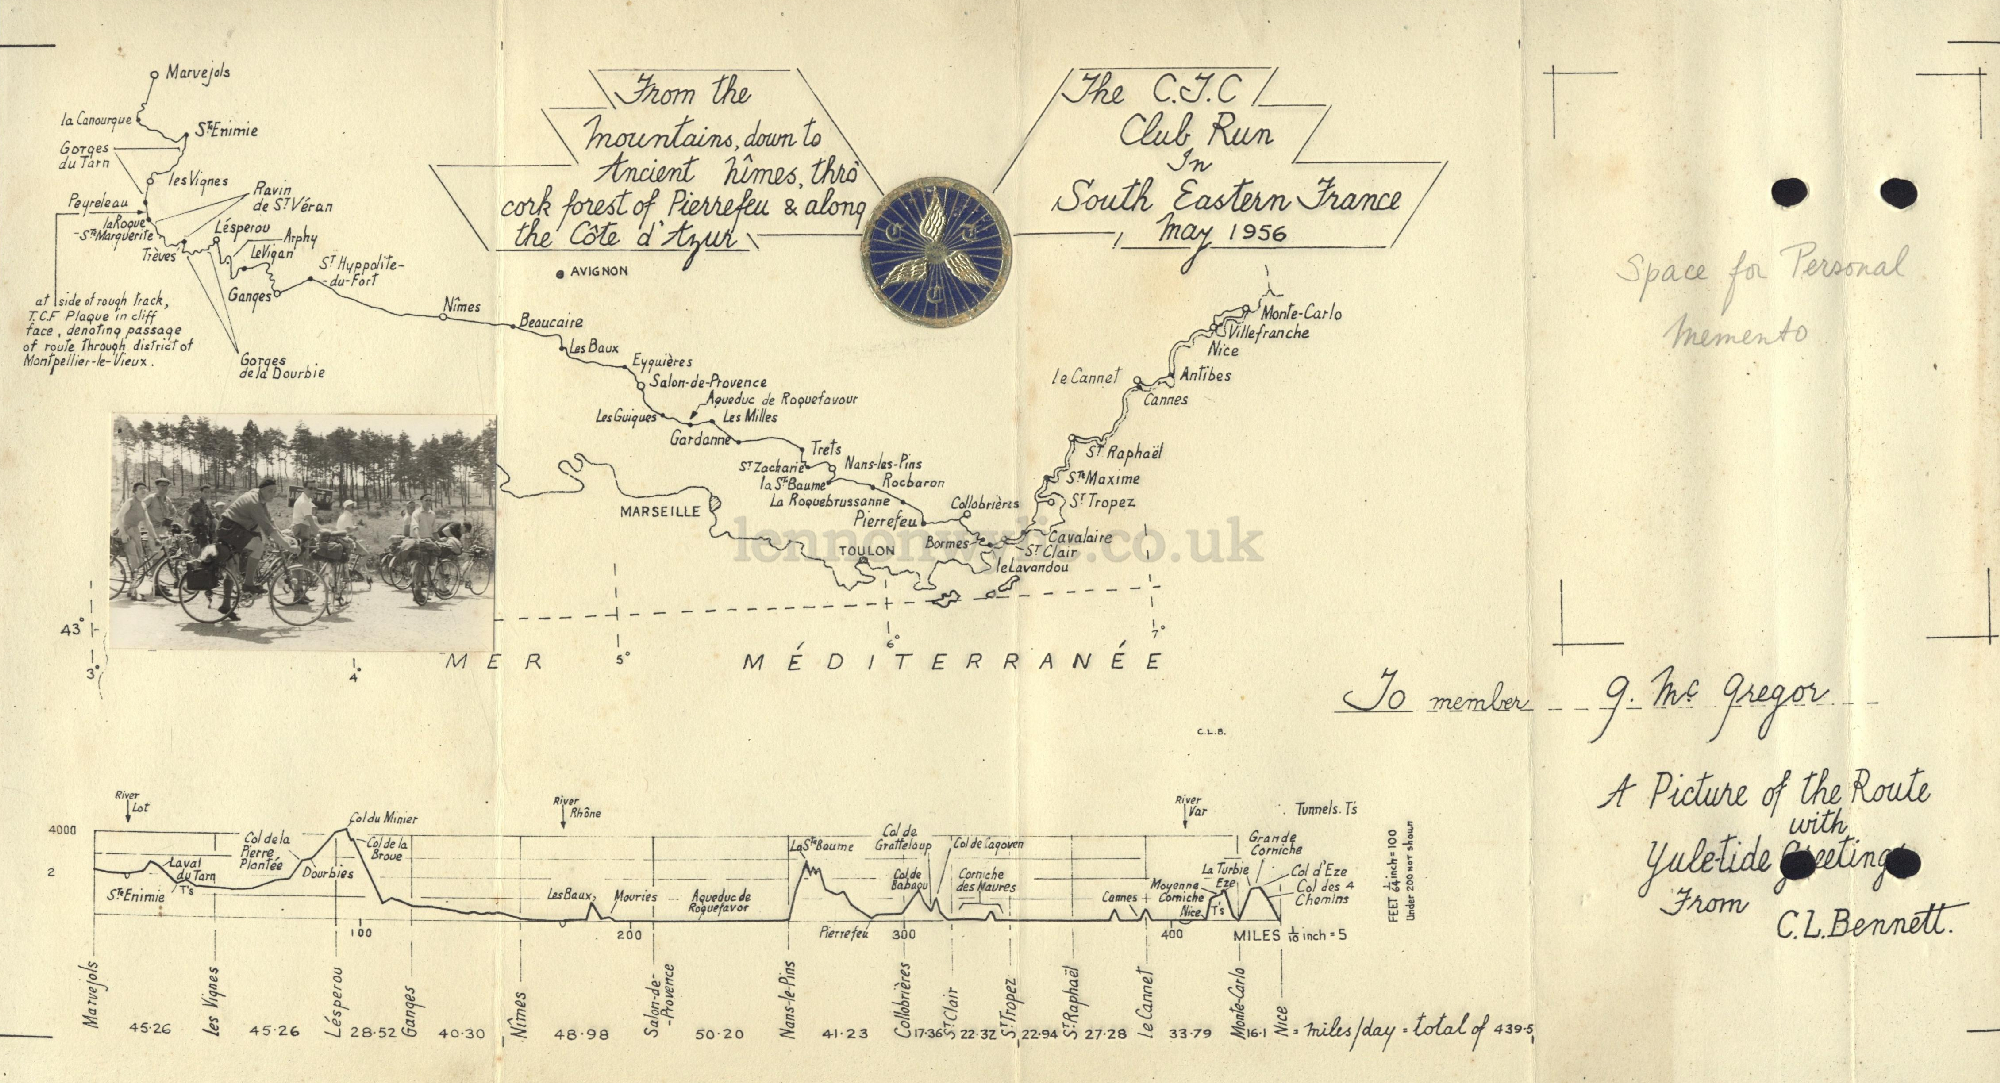 From the
Mountains, down to
Ancient Nîmes, thro'
cork forest of Pierrefeu & along
the Côte d'Azur
The C.T.C
Club Run
In
South Eastern France
May 1956
C T C
Marvejols
la Canourgue
Ste Enimie
Gorges
du Tarn
les Vignes
Peyreleau
Ravin
de St Véran
la Roque
-Ste Marguerite
Lésperou
Arphy
Trèves
Le Vigan
St Hyppolite-
-du-Fort
Ganges
at side of rough track,
T.C.F Plaque in cliff
face, denoting passage
of route through district of
Montpellier-le-Vieux.
Gorges
de la Dourbie
AVIGNON
Nîmes
Beaucaire
Les Baux
Eyguières
Salon-de-Provence
Aqueduc de Roquefavour
Les Guigues
Les Milles
Gardanne
Trets
St Zacharie
Nans-les-Pins
la Ste Baume
Rocbaron
La Roquebrussanne
Pierrefeu
Collobrières
Bormes
MARSEILLE
TOULON
Cavalaire
St Clair
le Lavandou
St Tropez
Ste Maxime
St Raphaël
Cannes
le Cannet
Antibes
Nice
Villefranche
Monte-Carlo
lennonwylie.co.uk
43°
3°
4°
5°
6°
7°
MER MÉDITERRANÉE
Space for Personal
Memento
To member G. Mc Gregor
C.L.B.
A Picture of the Route
with
Yuletide Greetings
From
C.L. Bennett.
River
Lot
River
Rhône
River
Var
Tunnels. T's
4000
2
Ste Enimie
Laval
du Tarn
T's
Col de la
Pierre
Plantée
Dourbies
Col du Minier
Col de la
Broue
Les Baux
Mouries
Aqueduc de
Roquefavor
La Ste Baume
Pierrefeu
Col de
Gratteloup
Col de
Babaou
Col de Cagoven
Corniche
des Maures
Cannes
Moyenne
Corniche
Nice
La Turbie
Eze
T's
Grande
Corniche
Col d'Eze
Col des 4
Chemins
FEET 1/64 inch = 100
Under 200 not shown
100
200
300
400
MILES 1/10 inch = 5
Marvejols
les Vignes
Lésperou
Ganges
Nîmes
Salon-de-
-Provence
Nans-le-Pins
Collobrières
St Clair
St Tropez
St Raphaël
Le Cannet
Monte-Carlo
Nice
45·26 45·26 28·52 40·30 48·98 50·20 41·23 17·36 22·32 22·94 27·28 33·79 16·1 = miles/day = total of 439·5